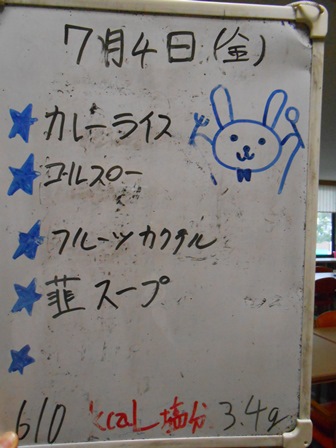 7月4日(金)
カレーライス
コールスロー
フルーツカクテル
韮スープ
610 kcal 塩分 3.4g